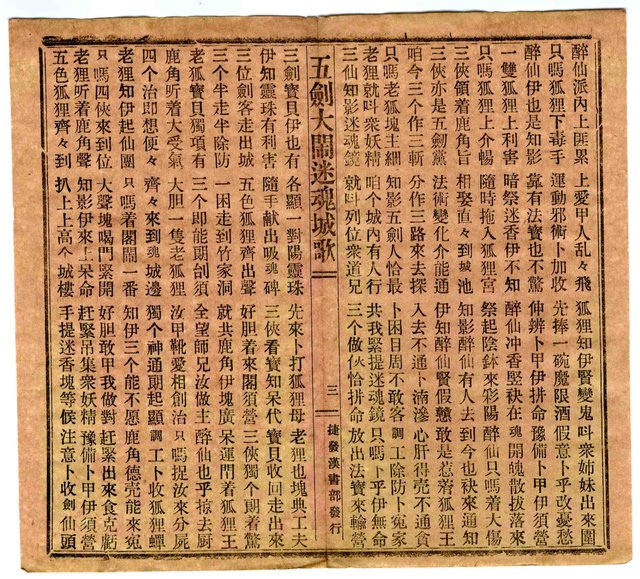 醉仙派內上匪累 上愛甲人乱々飛 狐狸知伊賢變鬼 叫衆姉妹出來圍
只嗎狐狸下毒手 運動邪術卜加收 先捧一碗魔限酒 假意卜乎改憂愁
醉仙伊也是知影 靠有法寶也不驚 仲辨卜甲伊拚命 豫備卜甲伊須營
一雙狐狸上利害 暗祭迷香伊不知 醉仙冲香堅秧在 魂開魄散拔落來
只嗎狐狸上介暢 隨時拖入狐狸宮 祭起陰鉢來彩陽 醉仙只嗎着大傷
三俠領着鹿角旨 相娶直々到城池 知影醉仙有人去 到今也袂來通知
三俠亦是五劔黨 法術變化介能通 伊知醉仙賢假戇 敢是惹着狐狸王
咱今三个作三斬 分作三路來去探 入去不通卜湳滲 心肝得壳不通貪
只嗎老狐塊主細 知影五劍人恰最 卜困日周不敢客 調工除防卜冤家
老狸就叫衆妖精 咱个城內有人行 共我緊提迷魂鏡 只嗎卜乎伊無命
三仙知影迷魂鏡 就叫列位衆道兄 三个做伙恰拚命 放出法寶來輸營
五劍大鬧迷魂城歌 三 捷發漢書部發行
三劍寶貝伊也有 各顯一對陽靈珠 先來卜打狐狸母 老狸也塊典工夫
伊知靈珠有利害 隨手献出吸魂碑 三俠看寶知呆代 寶貝收回走出來
三位劍客走出城 五色狐狸齊出聲 好胆着來閣須營 三俠獨个期着驚
三个半走半除防 一困走到竹家洞 就共鹿角伊塊廣 呆運門着狐狸王
老狐寶貝獨項有 三个即能期刣須 全望師兄汝做主 醉仙也乎掠去厨
鹿角听着大受氣 大胆一隻老狐狸 汝甲靴愛相創治 只嗎捉汝來分屍
四个治即想便々 齊々來到魂城邊 獨个神通期起顯 調工卜收狐狸蟬
老狸知伊起仙團 只嗎着閣鬧一番 知伊三个能不愿 鹿角德壳能來寃
只嗎四俠來到位 大聲塊喝門緊開 好胆敢甲我做對 趕緊出來食克虧
老狸听着鹿角聲 知影伊來上呆命 趕緊吊集衆妖精 豫備卜甲伊須營
五色狐狸齊々到 扒上上高个城樓 手提迷香塊等候 注意卜收劍仙頭